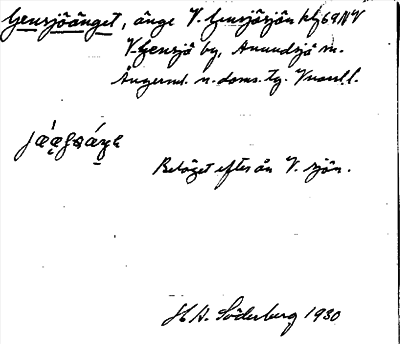 Gensjöänget, änge V. Gensjösjön kbl 69 NV
V. Gensjö by, Anundsjö sn.
Ångerml. n. doms. tg. Vnorrl. l.
Beläget efter ån V. sjön.
H. A. Söderberg 1930